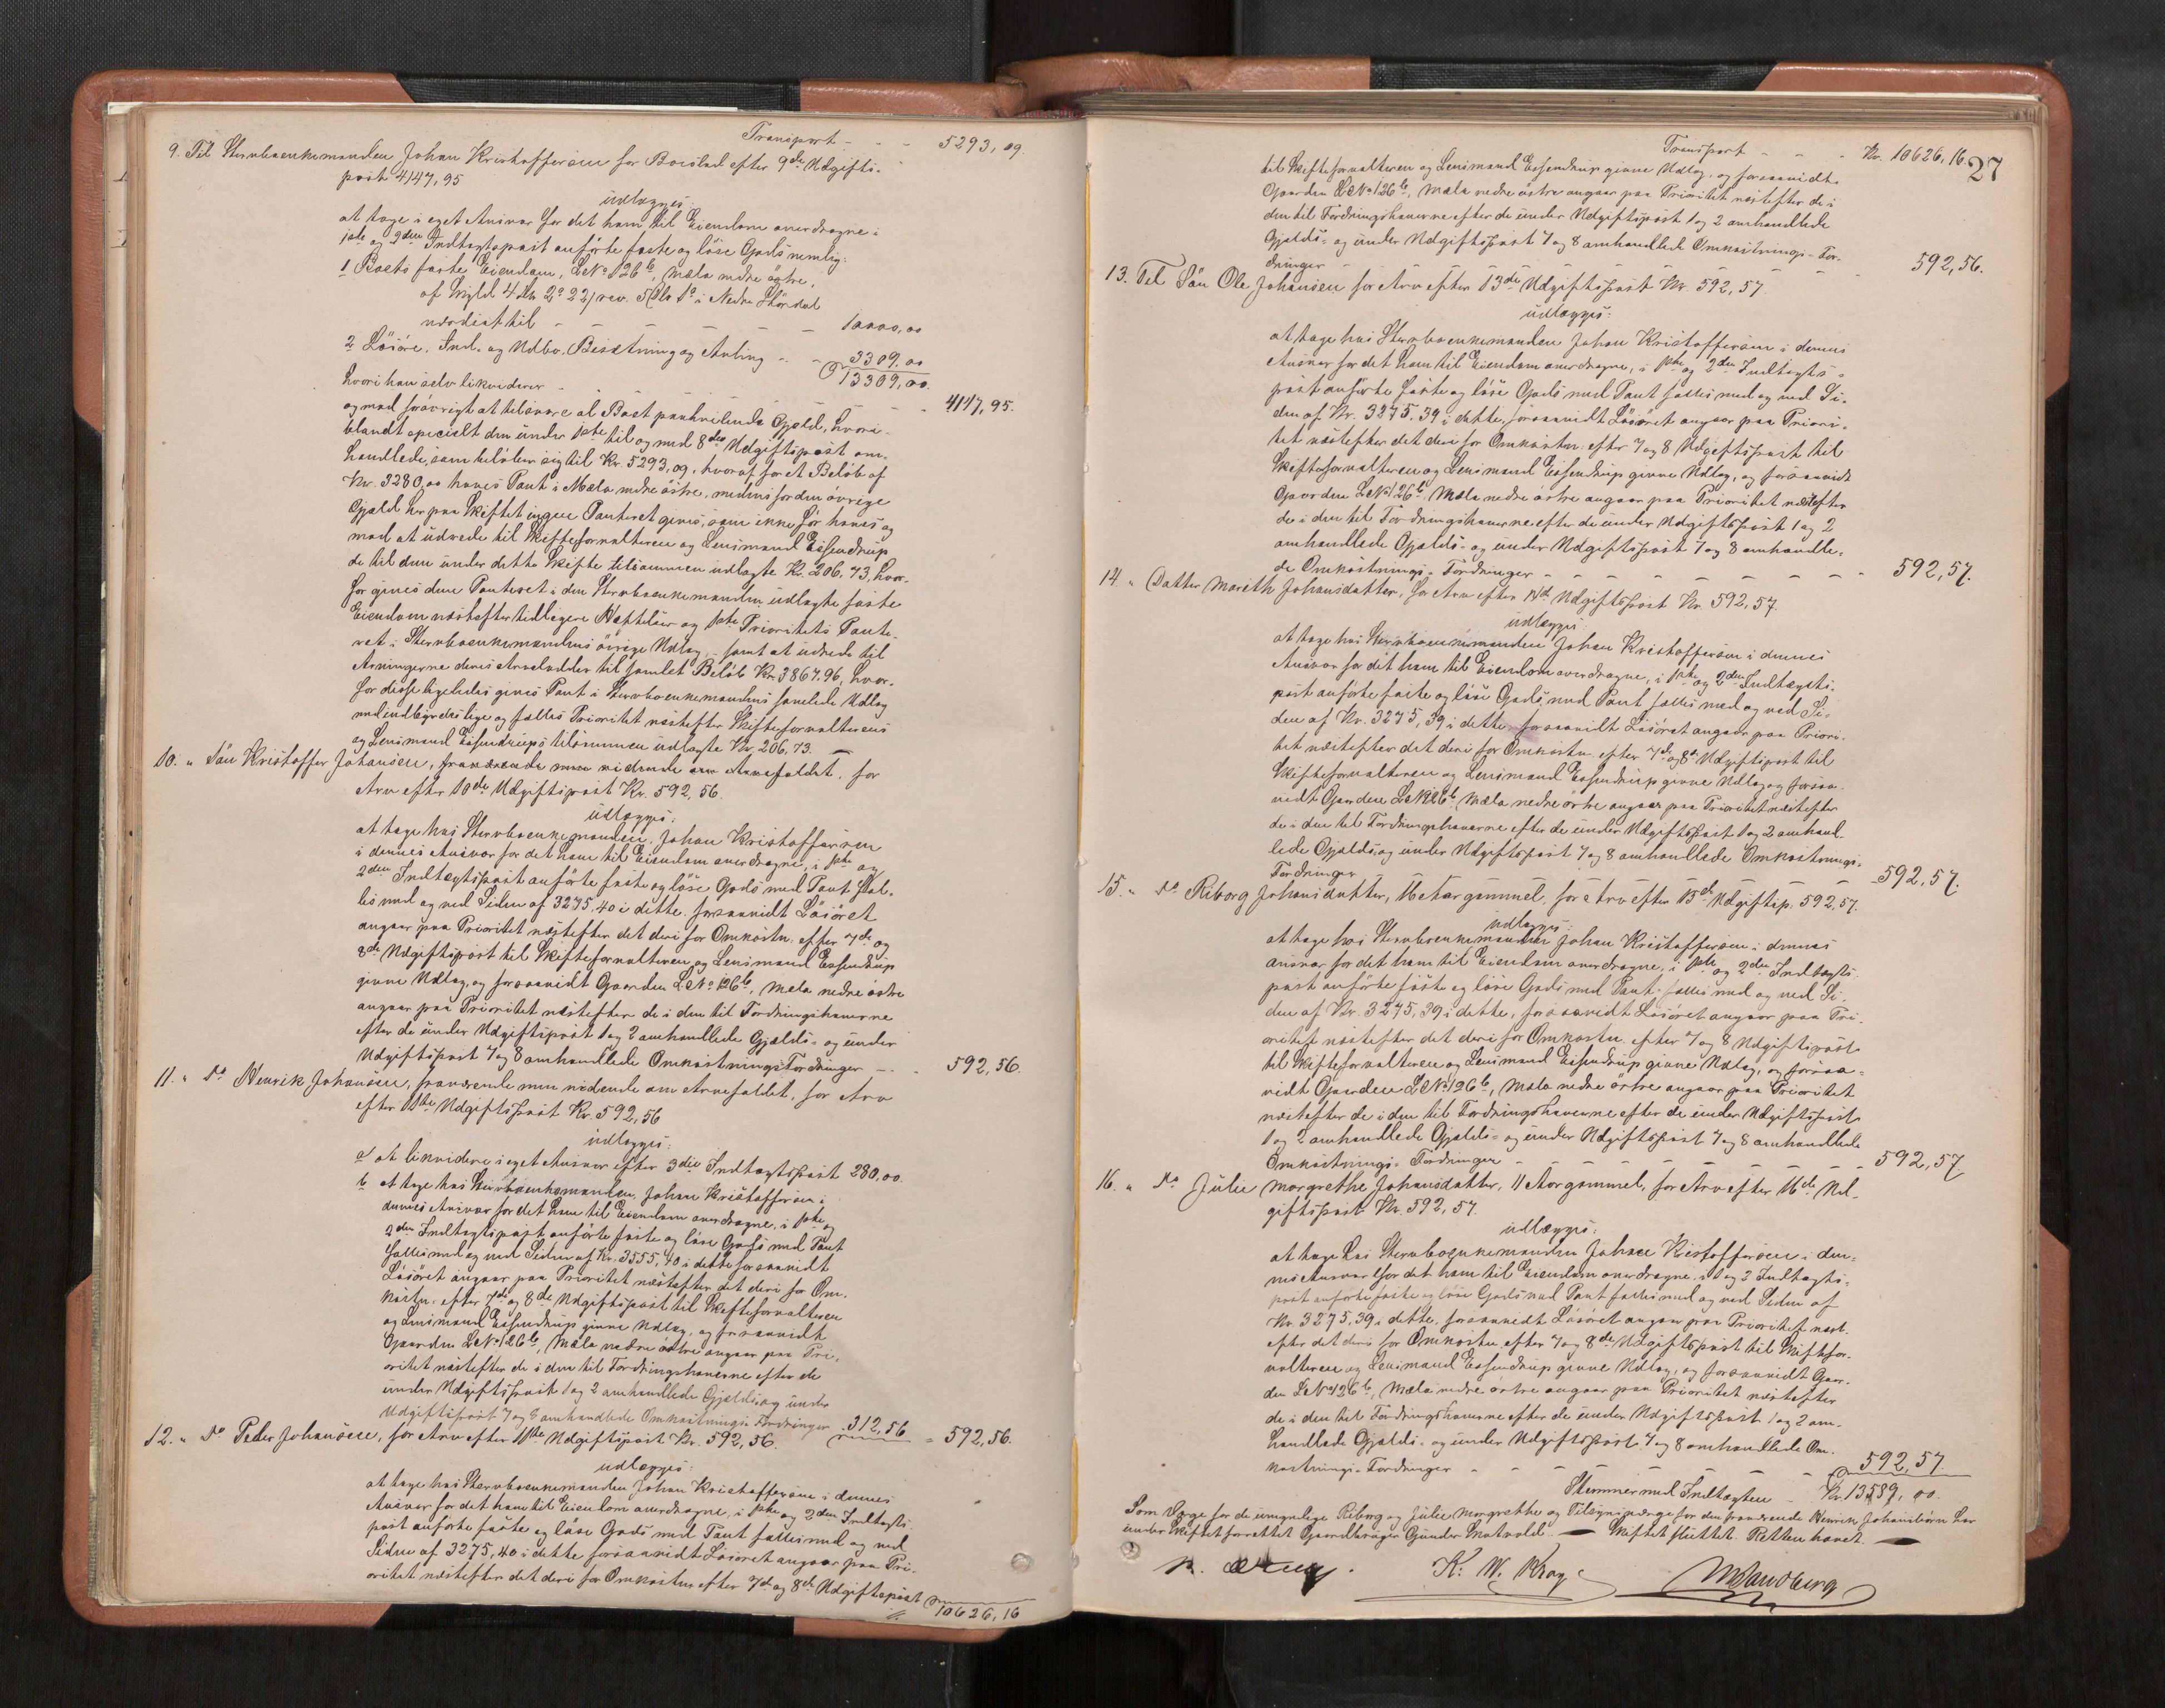 Transport - - - 5293,09.
9. Til Sterboenkemanden Johan Kristoffersen for Boeslod efter 9de Udgifts-
post 4147,95
udlægges:
at tage i eget Ansvar for det ham til Eiendom overdragne i
1ste og 2den Indtægtspost anførte faste og løse Gods nemlig:
1 Boets faste Eiendom, LNo 126b, Mæla nedre østre,
af Skyld 4 Mk 2 22/ rev. 5 Dlr 1 i Nedre Størdal
værdsat til - - - - - - 10000,00
2 Løsøre, Ind- og Udbo, Besætning og Avling - - 3309,00
13309,00.
hvori han selv likviderer - - - - - 4147,95.
og mod forøvrigt at tilsvare al Boet paahvilende Gjæld, hvori-
blandt specielt den under 1ste til og med 8de Udgiftspost om-
handlede, som beløber sig til Kr. 5293,09, hvoraf for et Beløb af
Kr. 3280,00 haves Pant i Mæla nedre østre, medens for den øvrige
Gjæld her paa Skiftet ingen Panteret gives, som ikke før haves og
mod at udrede til Skifteforvalteren og Lensmand Essendrup
de til dem under dette Skifte tilsammen udlagte Kr. 206,73, hvor-
for gives dem Panteret i den Sterboenkemanden udlagte faste
Eiendom næstefter tidligere Heftelser og 1ste Prioritets Pante-
ret i Sterboenkemandens øvrige Udlæg, - samt at udrede til
Arvingerne deres Arvelodder til samlet Beløb Kr. 3867,96, hvor-
for disse ligeledes gives Pant i Sterboenkemandens samlede Udlæg
med indbyrdes lige og fælles Prioritet næstefter Skifteforvalterens
og Lensmand Essendrups tilsammen udlagte Kr. 206,73. —
10. " Søn Kristoffer Johansen, fraværende men vidende om Arvefaldet, for
Arv efter 10de Udgiftspost Kr. 592,56.
udlægges:
at tage hos Sterboenkemanden Johan Kristoffersen
i dennes Ansvar for det ham til Eiendom overdragne, i 1ste og
2den Indtægtspost anførte faste og løse Gods med Pant fæl-
les med og ved Siden af 3275,40 i dette, forsaavidt Løsøret
angaar paa Prioritet næstefter det deri for Omkostn. efter 7de og
8de Udgiftspost til Skifteforvalteren og Lensmand Essendrup
givne Udlæg, og forsaavidt Gaarden LNo 126b, Mæla nedre østre
angaar paa Prioritet næstefter de i den til Fordringshaverne
efter de under Udgiftspost 1 og 2 omhandlede Gjælds- og under
Udgiftspost 7 og 8 omhandlede Omkostnings-Fordringer - - 592,56.
11. " Do Henrik Johansen, fraværende men vidende om Arvefaldet, for Arv
efter 11te Udgiftspost Kr. 592,56
udlægges:
a/ at likvidere i eget Ansvar efter 3die Indtægtspost 280,00.
b at tage hos Sterboenkemanden Johan Kristoffersen i
dennes Ansvar for det ham til Eiendom overdragne, i 1ste og
2den Indtægtspost anførte faste og løse Gods med Pant
fælles med og ved Siden af Kr. 3555,40 i dette forsaavidt
Løsøret angaar paa Prioritet næstefter det deri for Om-
kostn. efter 7de og 8de Udgiftspost til Skifteforvalteren
og Lensmand Essendrup givne Udlæg, og forsaavidt
Gaarden LNo 126b, Mæla nedre østre angaar paa Pri-
oritet næstefter de i den til Fordringshaverne efter de
under Udgiftspost 1 og 2 omhandlede Gjælds, og under
Udgiftspost 7 og 8 omhandlede Omkostnings Fordringer 312,56 - 592,56.
12. " Do Peder Johansen, for Arv efter 11te Udgiftspost Kr. 592,56.
udlægges:
at tage hos Sterboenkemanden Johan Kristoffersen i dennes
Ansvar for det ham til Eiendom overdragne, i 1ste og 2den Indtægts-
post anførte faste og løse Gods med Pant fælles med og ved
Siden af 3275,40 i dette forsaavidt Løsøret angaar paa Pri-
oritet næstefter det deri for Omkostn efter 7de og 8de Udgiftspost
10626,16
27
Transport - - - Kr. 10626,16.
til Skifteforvalteren og Lensmand Essendrup givne Udlæg, og forsaavidt
Gaarden LNo 126b, Mæla nedre østre angaar paa Prioritet næstefter de i
den til Fordringshaverne efter de under Udgiftspost 1 og 2 omhandlede
Gjælds- og under Udgiftspost 7 og 8 omhandlede Omkostnings-For-
dringer - - - - - - - 592,56.
13. Til Søn Ole Johansen for Arv efter 13de Udgiftspost Kr. 592,57
udlægges:
at tage hos Sterboenkemanden Johan Kristoffersen i dennes
Ansvar for det ham til Eiendom overdragne, i 1ste og 2den Indtægts-
post anførte faste og løse Gods med Pant fælles med og ved Si-
den af Kr. 3275,39 i dette, forsaavidt Løsøret angaar paa Priori-
tet næstefter det deri for Omkostn. efter 7 og 8 Udgiftspost til
Skifteforvalteren og Lensmand Essendrup givne Udlæg, og forsaavidt
Gaarden LNo 126b, Mæla nedre østre angaar paa Prioritet næstefter
de i den til Fordringshaverne efter de under Udgiftspost 1 og 2
omhandlede Gjælds- og under Udgiftspost 7 og 8 omhandle-
de Omkostnings-Fordringer - - - - - - - 592,57.
14. " Datter Marith Johansdatter, for Arv efter 14de Udgiftspost Kr. 592,57.
udlægges:
at tage hos Sterboenkemanden Johan Kristoffersen i dennes
Ansvar for det ham til Eiendom overdragne, i 1ste og 2den Indtægts-
post anførte faste og løse Gods, med Pant fælles med og ved Si-
den af Kr. 3275,39 i dette, forsaavidt Løsøret angaar paa Priori-
tet næstefter det deri for Omkostn. efter 7de og 8de Udgiftspost til
Skifteforvalteren og Lensmand Essendrup givne Udlæg og forsaa-
vidt Gaarden LNo 126b Mæla nedre østre angaar paa Prioritet næstefter
de i den til Fordringshaverne efter de under Udgiftspost 1 og 2 omhand-
lede Gjælds, og under Udgiftspost 7 og 8 omhandlede Omkostnings-
Fordringer - - - - - - - 592,57.
15. " Do Riborg Johansdatter, 16 Aar gammel, for Arv efter 15de Udgiftsp. 592,57.
udlægges:
at tage hos Sterboenkemanden Johan Kristoffersen i dennes
Ansvar for det ham til Eiendom overdragne, i 1ste og 2den Indtægts-
post anførte faste og løse Gods med Pant fælles med og ved Si-
den af Kr. 3275,39 i dette, forsaavidt Løsøret angaar paa Pri-
oritet næstefter det deri for Omkostn. efter 7 og 8 Udgiftspost
til Skifteforvalteren og Lensmand Essendrup givne Udlæg, og forsaa-
vidt Gaarden LNo 126b, Mæla nedre østre angaar paa Prioritet
næstefter de i den til Fordringshaverne efter de under Udgiftspost
1 og 2 omhandlede Gjælds- og under Udgiftspost 7 og 8 omhandlede
Omkostnings-Fordringer - - - - - - 592,57
16. " Do Julie Margrethe Johansdatter, 11 Aar gammel, for Arv efter 16de Ud-
giftspost Kr. 592,57.
udlægges:
at tage hos Sterboenkemanden Johan Kristoffersen i den-
nes Ansvar for det ham til Eiendom overdragne, i 1 og 2 Indtægts-
post anførte faste og løse Gods med Pant fælles med og ved Siden af
Kr. 3275,39 i dette, forsaavidt Løsøret angaar paa Prioritet næst-
efter det deri for Omkostn efter 7 og 8de Udgiftspost til Skiftefor-
valteren og Lensmand Essendrup givne Udlæg, og forsaavidt Gaar-
den LNo 126b, Mæla nedre østre angaar paa Prioritet næstefter
de i den til Fordringshaverne efter de under Udgiftspost 1 og 2 om-
handlede Gjælds- og under Udgiftspost 7 og 8 omhandlede Om-
kostnings-Fordringer - - - - - - 592,57.
Stemmer med Indtægten Kr. 13589,00.
Som Værge for de umyndige Riborg og Julie Margrethe og Tilsynsværge for den fraværende Henrik Johansen har
under Skiftet forrettet Gaardbruger Gunder — Skiftet sluttet. Retten hævet. —
K. W. Krog M Sandberg